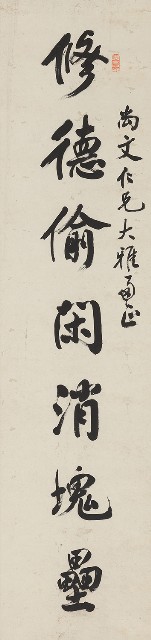 尚文仁兄大雅両正
修德偷閑消塊壘